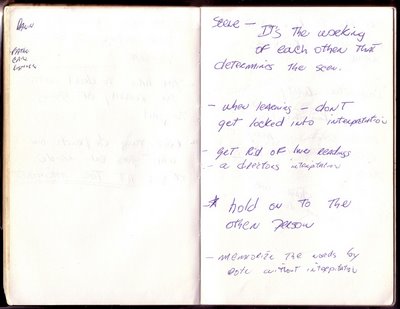 DAWN
SCENE — IT'S the working
of each other that
determins the scen.
- when learning - DON'T
get locked into interpretation
- get Rid of line readings
- a directors interpitation
* hold on to the
other person
- memorize the words by
rote without interpitation